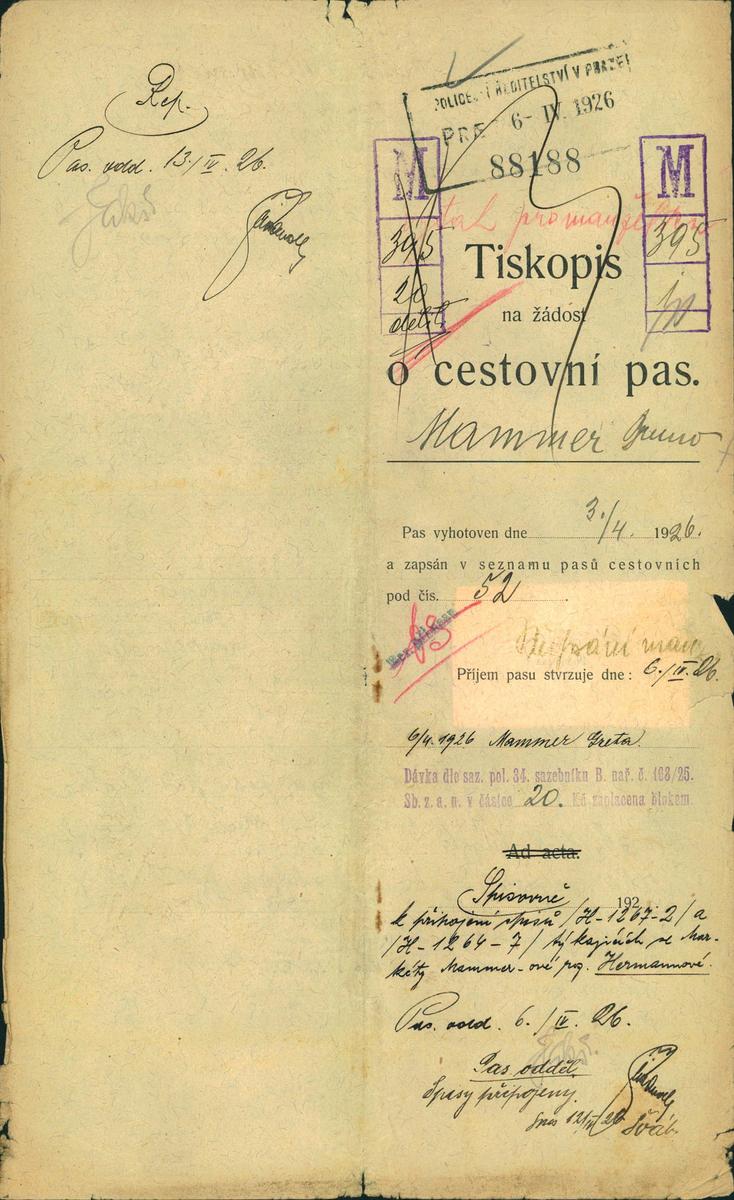 Rep.
Pas. odd. 13./IV. 26.
POLICEJNÍ ŘEDITELSTVÍ V PRAZE
6- IV. 1926
88188
M
395
20
M
395
Tiskopis
na žádost
o cestovní pas.
Mammer Bruno
Pas vyhotoven dne 3./4. 1926.
a zapsán v seznamu pasů cestovních
pod čís. 52
Příjem pasu stvrzuje dne: 6./IV. 26.
6/4. 1926 Mammer Greta.
Dávka dle saz. pol. 34. sazebníku B. nař. č. 163/25.
Sb. z. a. n. v částce 20. Kč zaplacena blokem.
Ad acta.
192
Spisovně
k připojení spisů /H-1267-2/ a
/H-1264-7/ týkajících se Mar-
kéty Mammer-ové roz. Hermannové.
Pas. odd. 6./IV. 26.
Pas odděl.
Spisy připojeny.
Šváb.